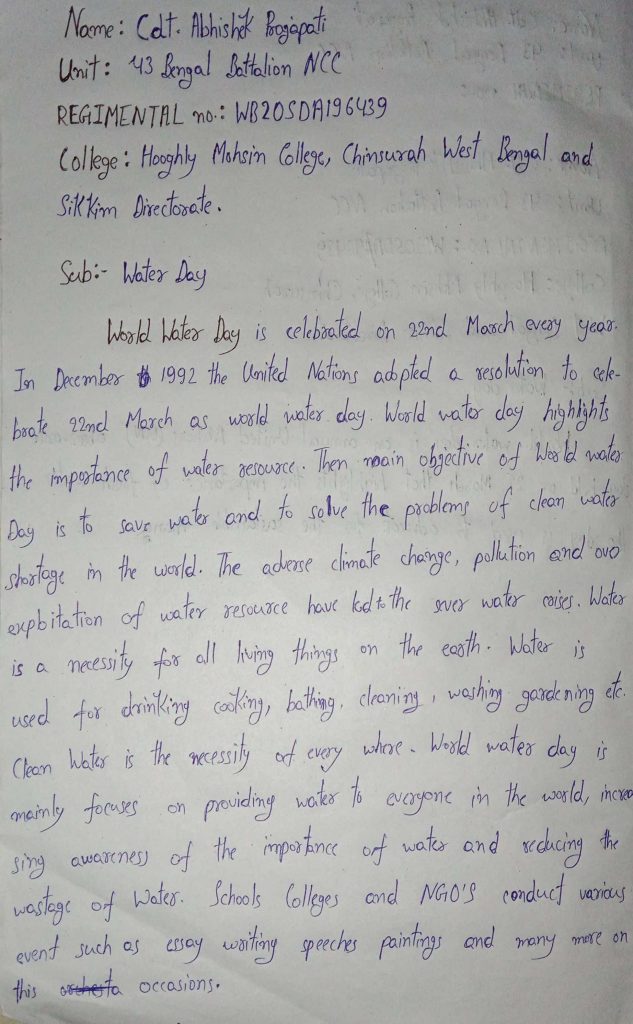 Name: Cdt. Abhishek Prajapati
Unit: 43 Bengal Battalion NCC
REGIMENTAL no.: WB20SDA196439
College: Hooghly Mohsin College, Chinsurah West Bengal and
Sikkim Directorate.
Sub:- Water Day
World Water Day is celebrated on 22nd March every year.
In December 1992 the United Nations adopted a resolution to cele-
brate 22nd March as world water day. World water day highlights
the importance of water resource. Then main objective of World water
Day is to save water and to solve the problems of clean water
shortage in the world. The adverse climate change, pollution and ovo
exploitation of water resource have led to the sever water crises. Water
is a necessity for all living things on the earth. Water is
used for drinking cooking, bathing, cleaning, washing gardening etc.
Clean Water is the necessity of every where. World water day is
mainly focuses on providing water to everyone in the world, increa
sing awareness of the importance of water and reducing the
wastage of Water. Schools Colleges and NGO'S conduct various
event such as essay writing speeches paintings and many more on
this occasions.